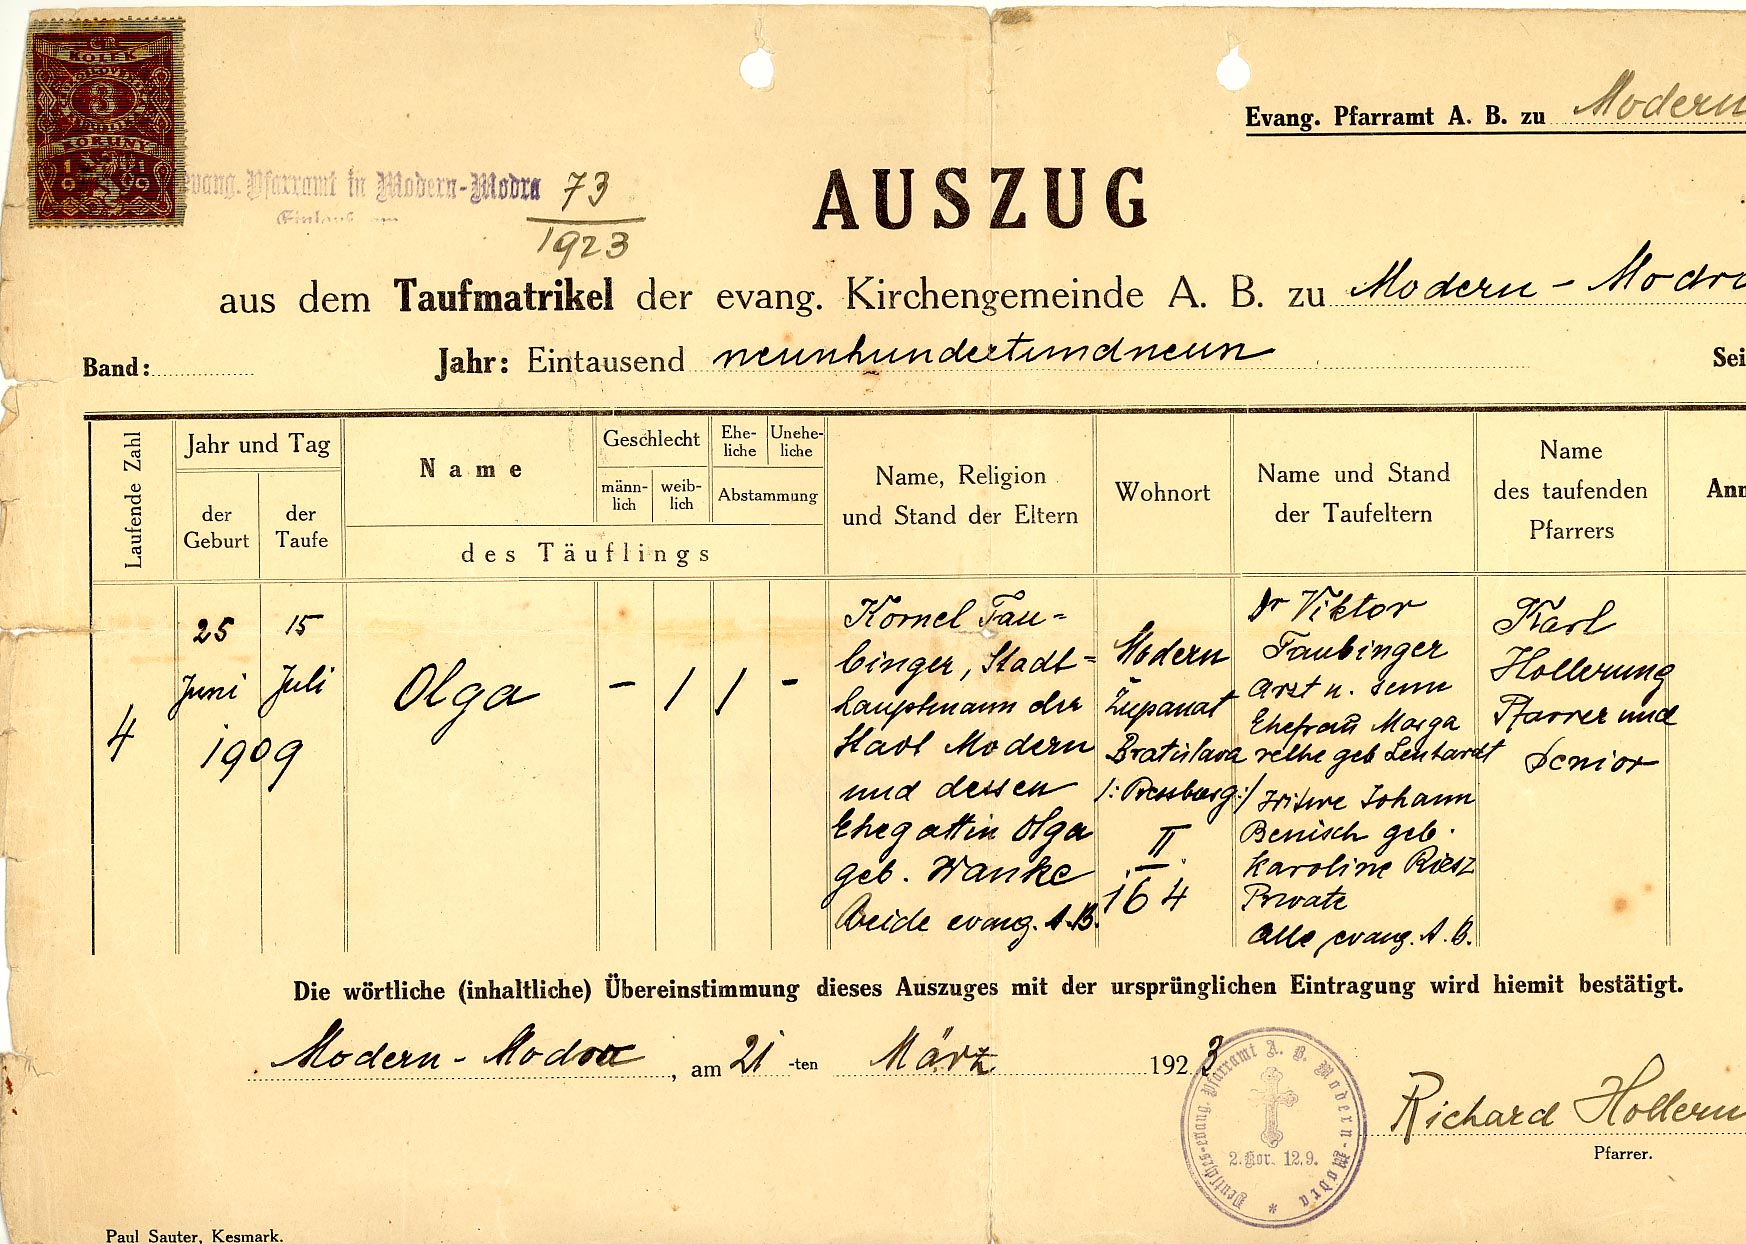 KOLEK
3
KORUNY
1919
evang. Pfarramt in Modern-Modra
73
1923
Evang. Pfarramt A. B. zu Modern
AUSZUG
aus dem Taufmatrikel der evang. Kirchengemeinde A. B. zu Modern - Modra
Band: Jahr: Eintausend neunhundertundneun Sei
Laufende Zahl
Jahr und Tag
der Geburt
der Taufe
Name
Geschlecht
männ-
lich
weib-
lich
Ehe-
liche
Unehe-
liche
Abstammung
des Täuflings
Name, Religion
und Stand der Eltern
Wohnort
Name und Stand
der Taufeltern
Name
des taufenden
Pfarrers
Ann
4
25
Juni
15
Juli
1909
Olga
–
/
/
–
Kornel Tau=
binger, Stadt=
hauptmann der
Stadt Modern
und dessen
Ehegattin Olga
geb. Wanke
Beide evang. A.B.
Modern
Županat
Bratislava
/: Pressburg :/
II
164
Dr Viktor
Taubinger
Arzt u. seine
Ehefrau Marga
rethe geb Lenhardt
Witwe Johann
Benisch geb.
Karoline Riesz
Private
Alle evang. A. B.
Karl
Hollerung
Pfarrer und
Senior
Die wörtliche (inhaltliche) Übereinstimmung dieses Auszuges mit der ursprünglichen Eintragung wird hiemit bestätigt.
Modern - Modra, am 21-ten März 1923
Deutsches-evang. Pfarramt A. B. Modern-Modra *
2. Kor. 12,9.
Richard Hollern
Pfarrer.
Paul Sauter, Kesmark.